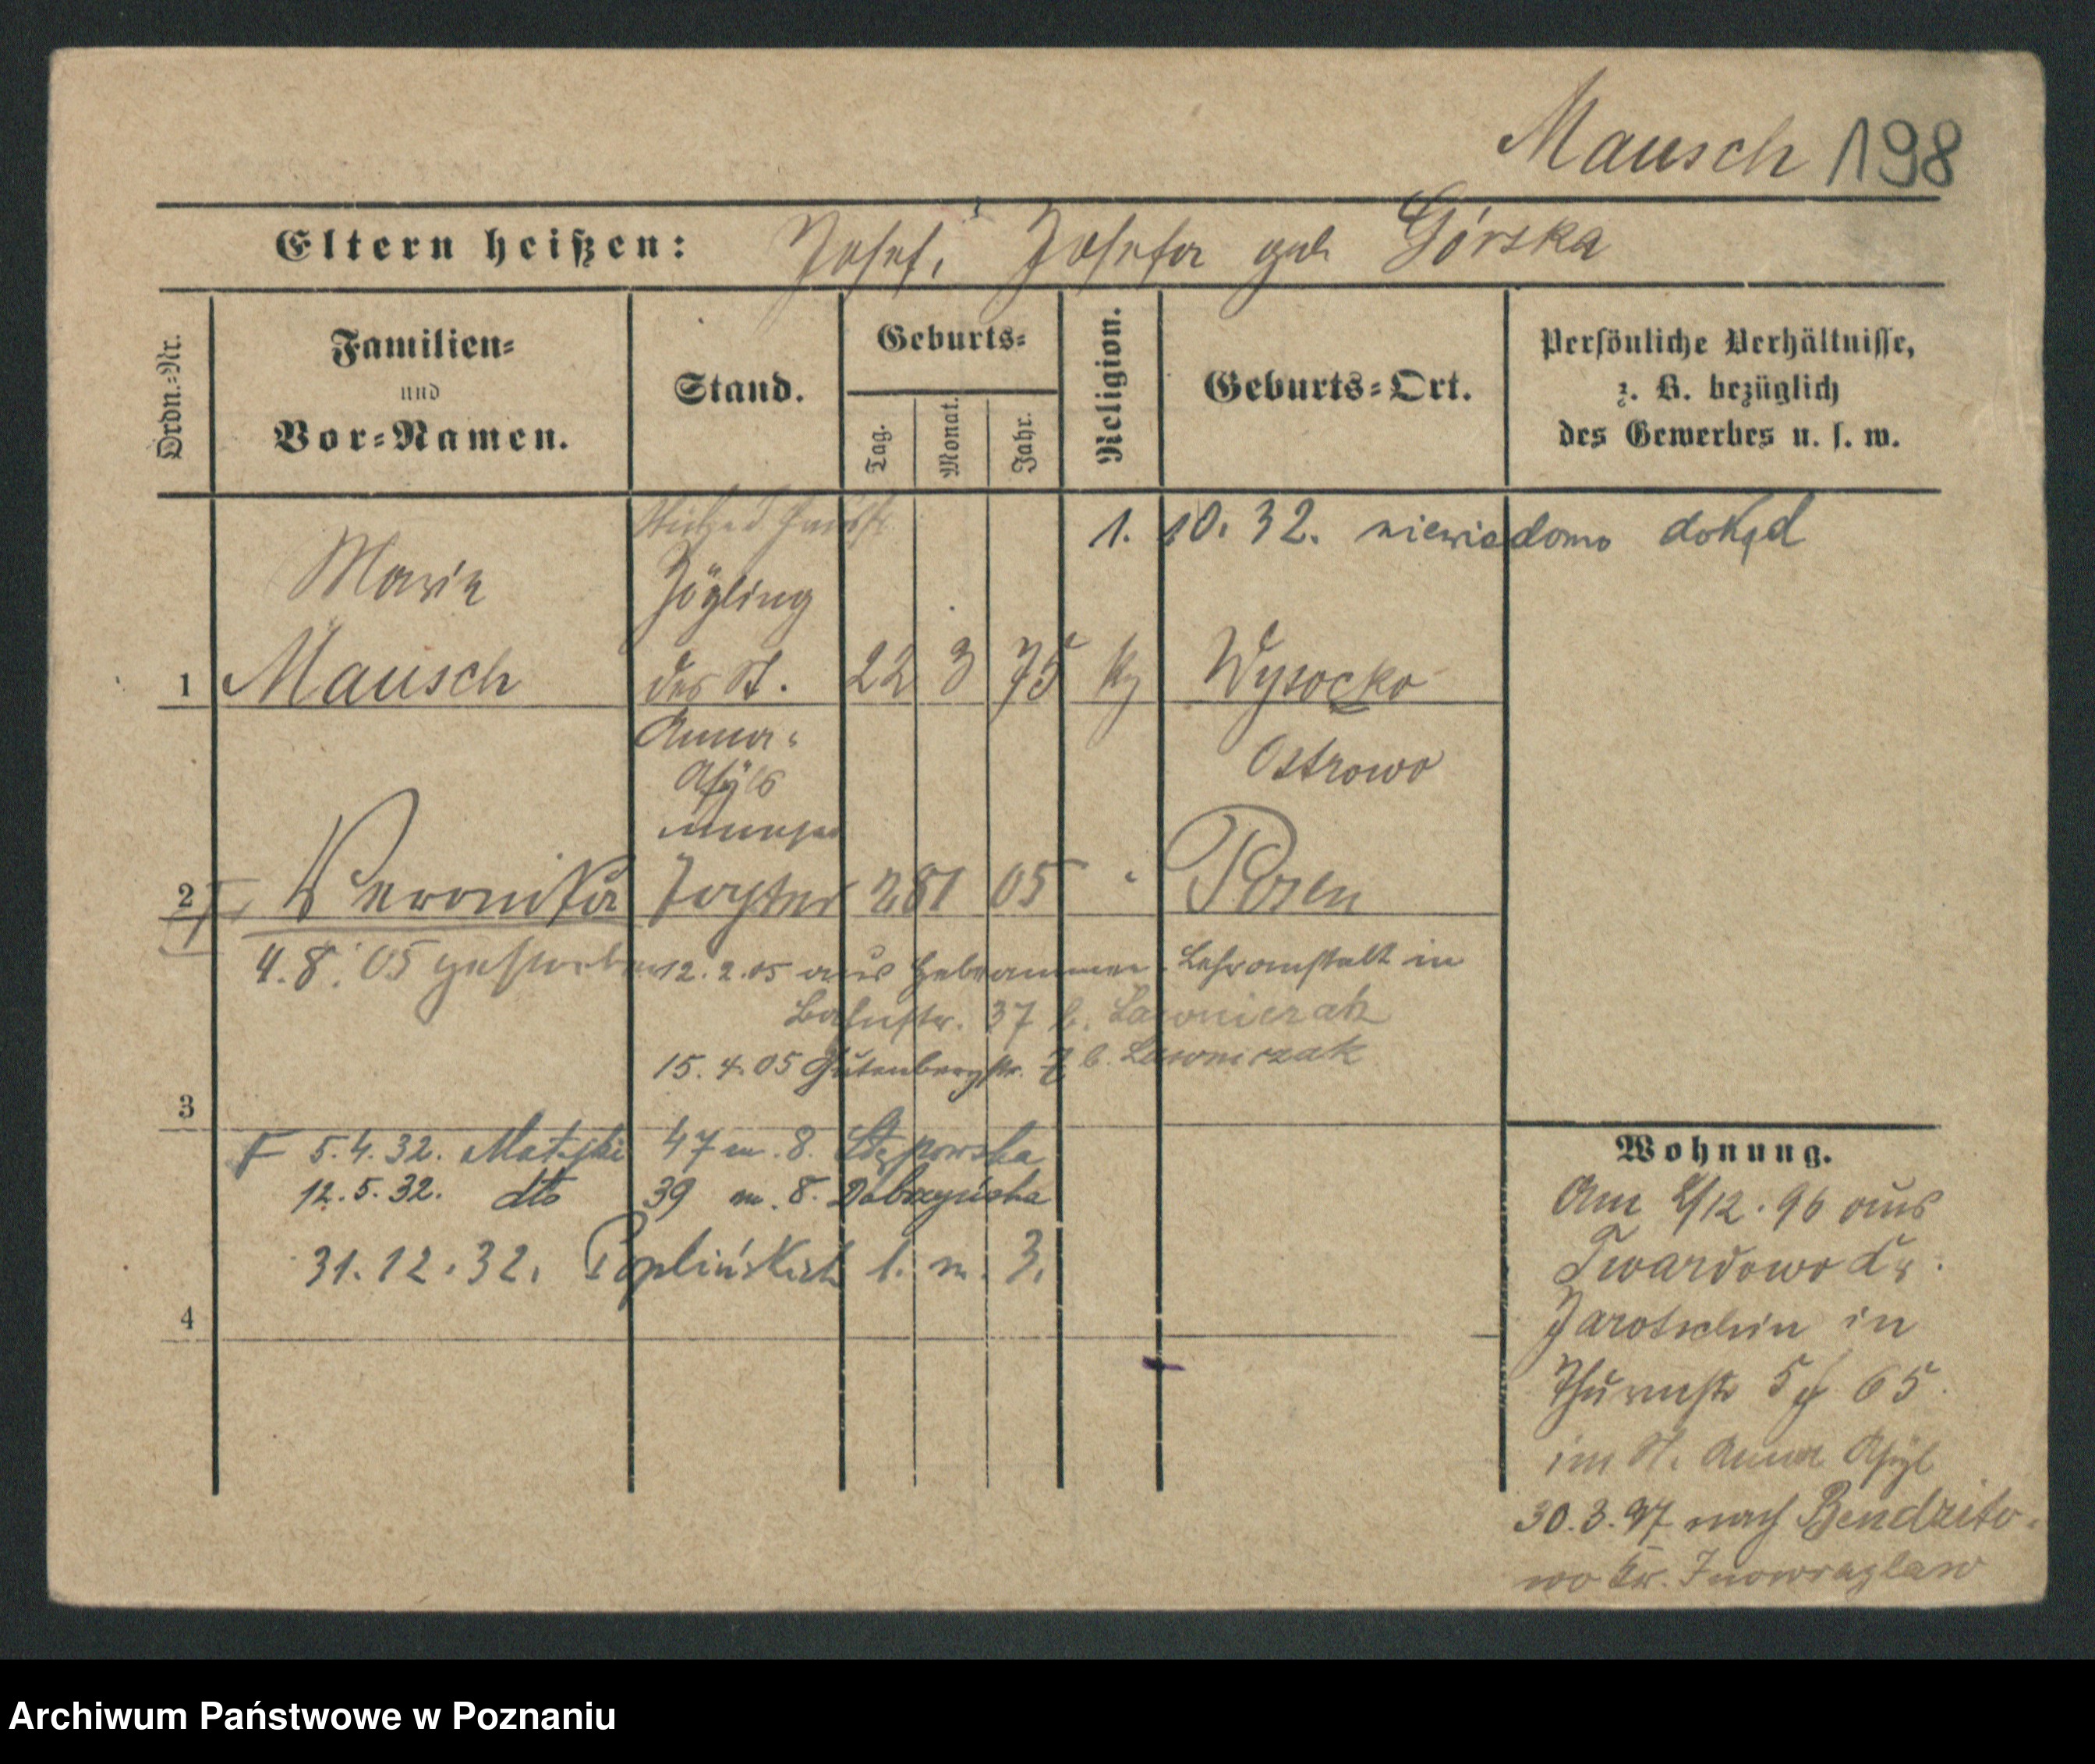 Mausch 198
Eltern heißen: Josef, Josefa geb Górska
Ordn.-Nr.
Familien-
und
Vor-Namen.
Stand.
Geburts-
Tag.
Monat.
Jahr.
Religion.
Geburts-Ort.
Persönliche Verhältnisse,
z. B. bezüglich
des Gewerbes u. s. w.
1. 10. 32. niewiadomo dokąd
Marie Zögling
1 Mausch des St. 22 3 75 Wysocko
Anna-
Asyls Ostrowo
2 Veronika Tochter 28 1 05 " Posen
4.8.05 gestorben 12.2.05 aus Hebammen-Lehranstalt in
Bahnstr. 37 b. Lawnierak
15.4.05 Gutenbergstr. 7 b. Lawnierzak
3
5.4.32. Matejki 47 m. 8. Stępowska
12.5.32. dto 39 m. 8. Dobrzyńska
31.12.32. Poplińskich 1. m. 3.
4
Wohnung.
Am 2/12.96 aus
Twardowo Kr.
Jarotschin in
Thurmstr 5 65.
im St. Anna Asyl
30.3.97 nach Bendzito-
wo Kr. Inowrazlaw
Archiwum Państwowe w Poznaniu